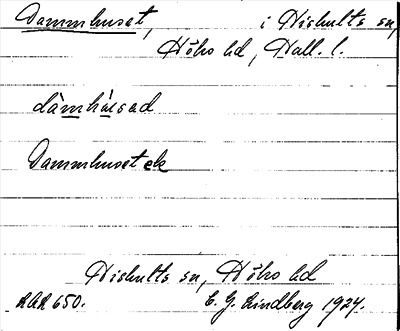 Dammhuset, i Hishults sn,
Höks hd, Hall. l.
dàmhúsad
Dammhuset ek
Hishults sn, Höks hd
RAÄ 650. E. G. Lindberg 1924.